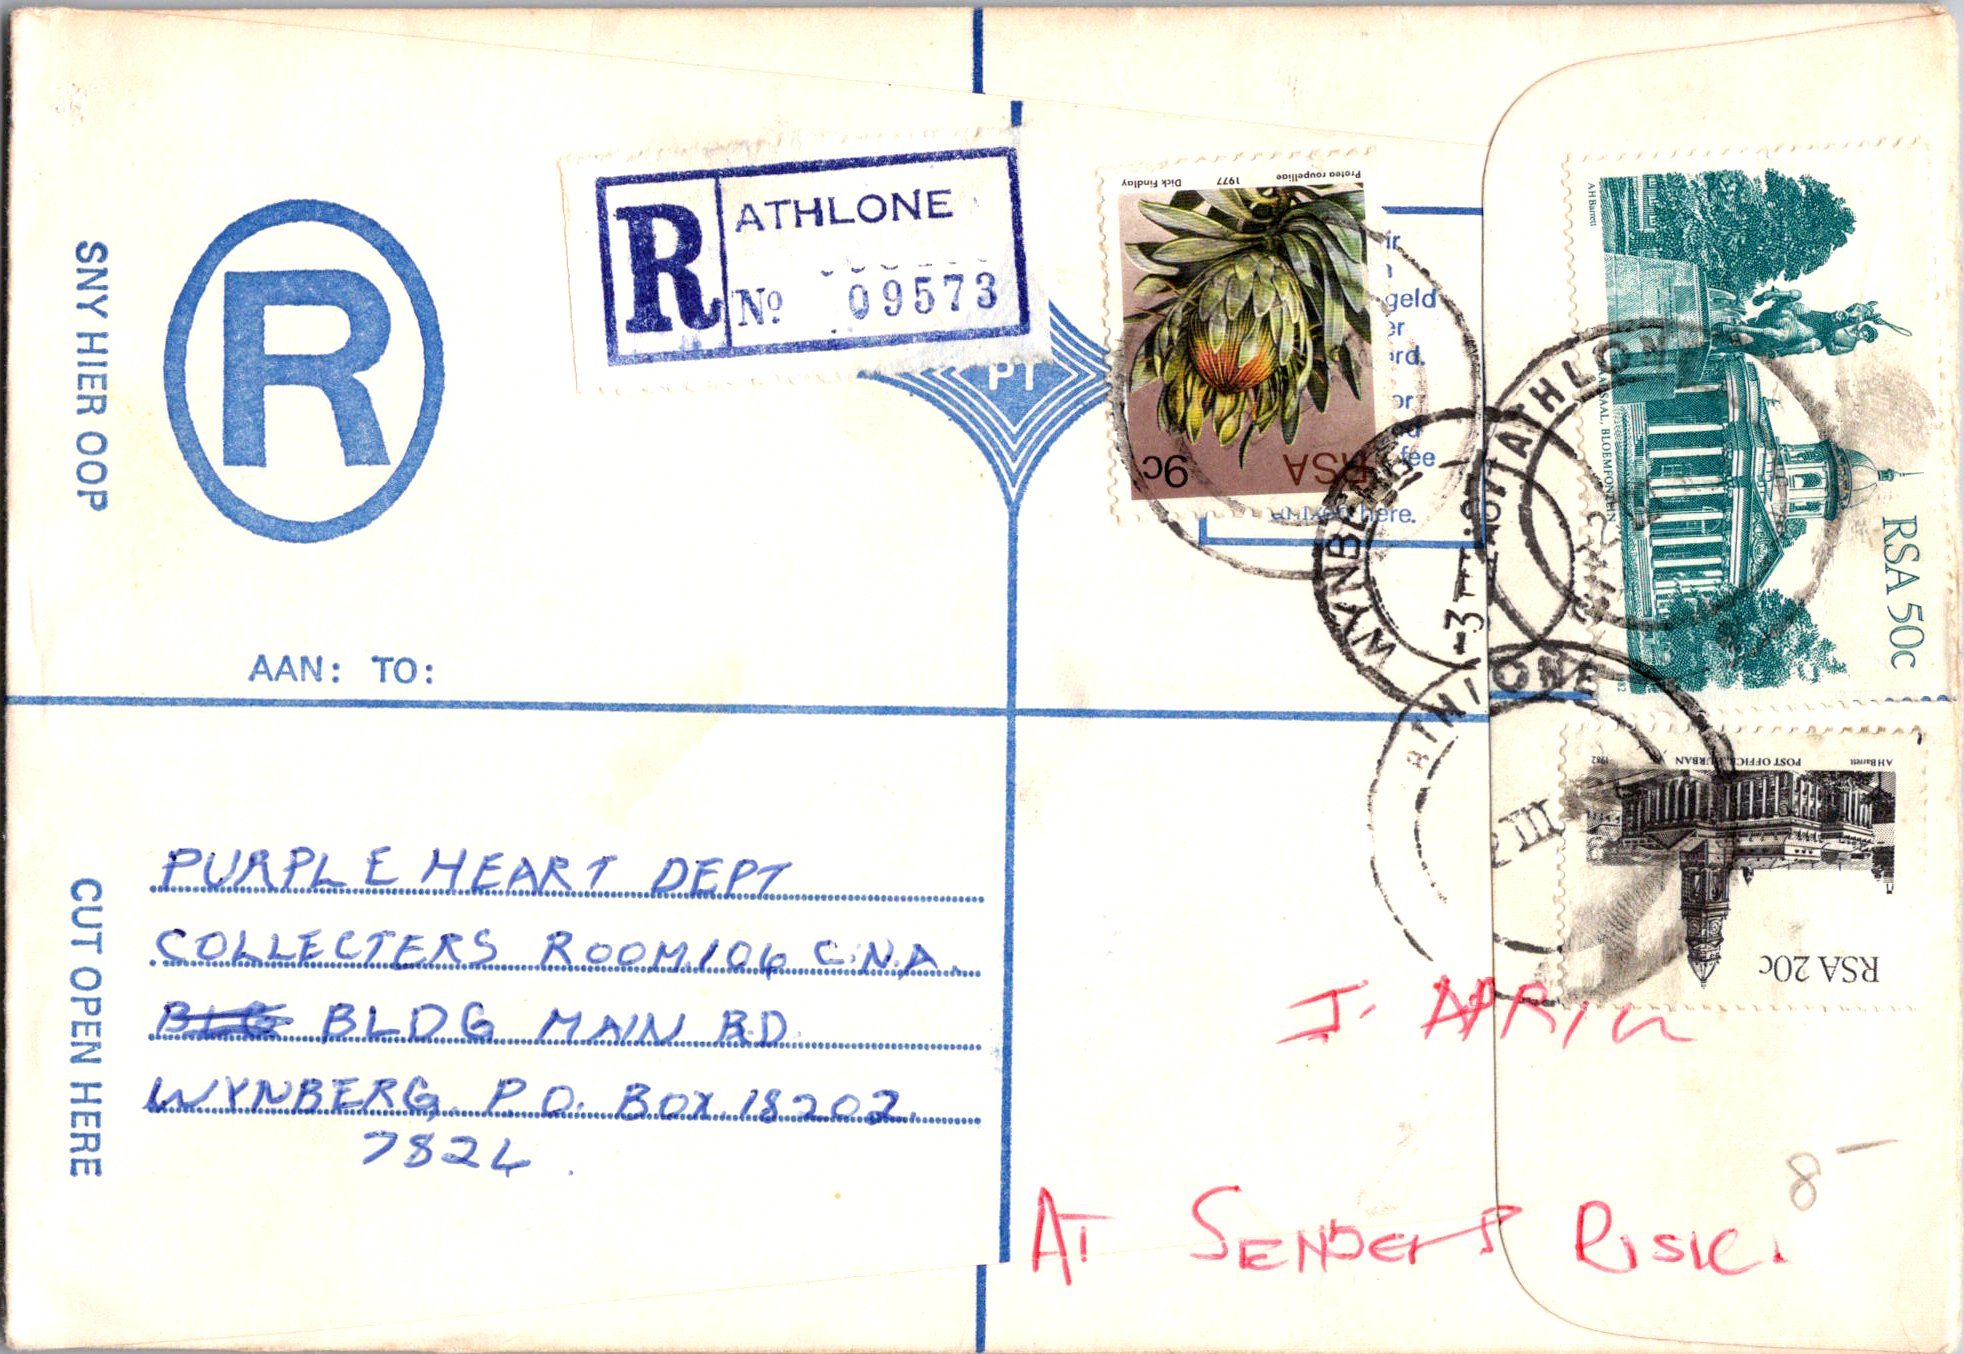 SNY HIER OOP
CUT OPEN HERE
R
R
ATHLONE
No 09573
PT
AAN: TO:
PURPLE HEART DEPT
COLLECTERS ROOM.106 C.N.A.
BLG BLDG MAIN RD
WYNBERG. P.O. BOX.18202.
7824
Protea roupelliae 1977 Dick Findlay
RSA 9c
geld
fee
here.
AH Barrett
BLOEMFONTEIN
RSA 50c
ATHLON
WYNBERG
-3
ATHLONE
III
AH Barrett POST OFFICE, DURBAN 1982
RSA 20c
J. APRIL
AT SENDERS RISK.
8 -